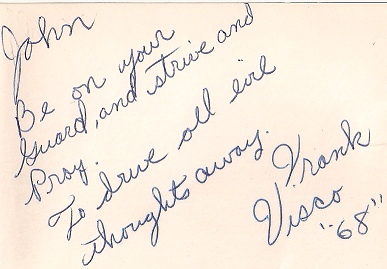 John
Be on your
guard, and strive and
Pray.
To drive all evil
thoughts away.
Frank
Visco
"68"